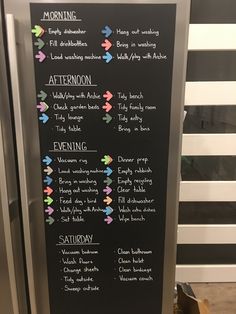 MORNING
Empty dishwasher
Fill drinkbottles
Load washing machine
Hang out washing
Bring in washing
Walk/play with Archie
AFTERNOON
Walk/play with Archie
Check garden beds
Tidy lounge
Tidy table
Tidy bench
Tidy family room
Tidy entry
Bring in bins
EVENING
Vacuum rug
Load washing machine
Bring in washing
Hang out washing
Feed dog + bird
Walk/play with Archie
Set table
Dinner prep
Empty rubbish
Empty recycling
Clear table
Fill dishwasher
Wash extra dishes
Wipe down benches
SATURDAY
Vacuum bedroom
Wash floors
Change sheets
Tidy outside
Sweep outside
Clean bathroom
Clean toilet
Clean birdcage
Vacuum couch